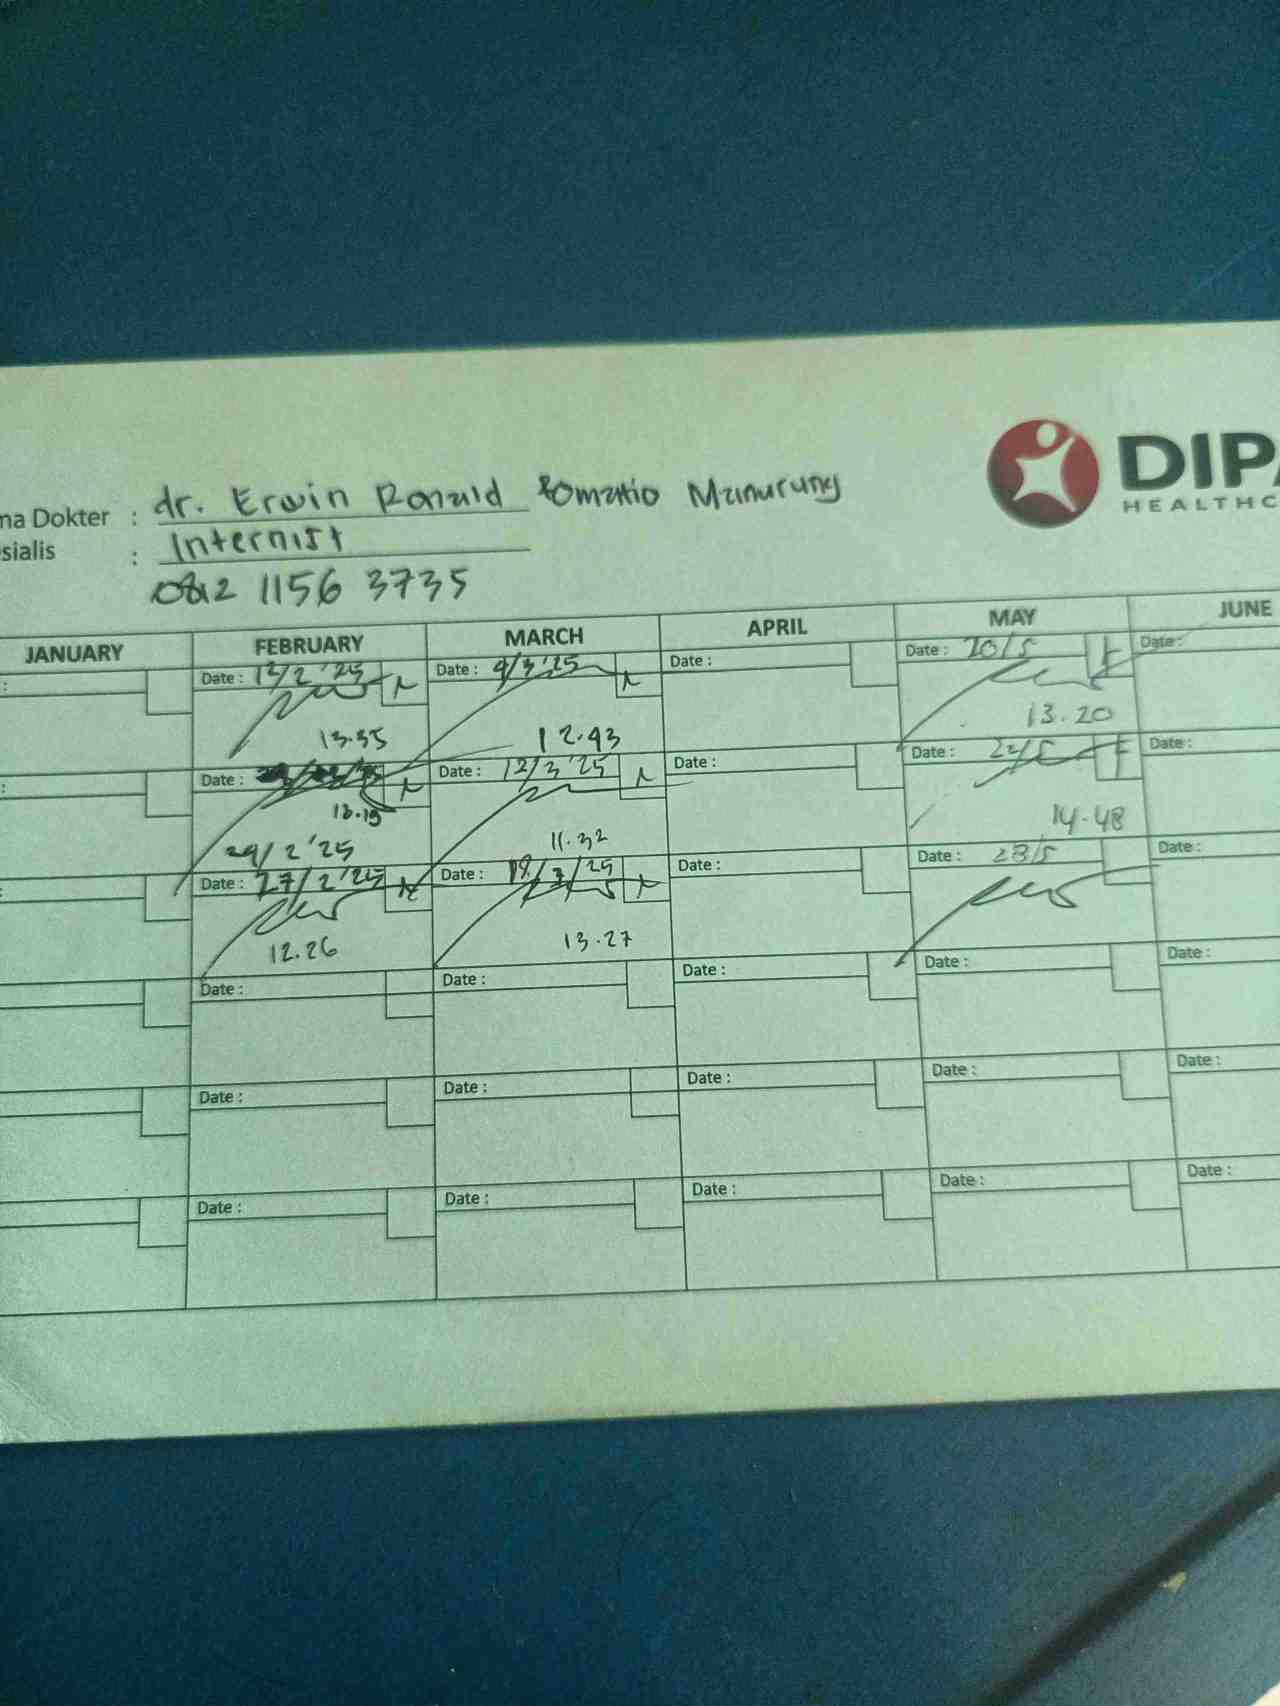 DIPA
HEALTHC
ma Dokter : dr. Erwin Ronald Manurung
sialis : Internist
0812 1156 3735
JANUARY FEBRUARY MARCH APRIL MAY JUNE
: Date : 12/2 '25 Date : 4/3 '25 Date : Date : 20/5 Date :
13.35 12.43 13.20
: Date : Date : 12/3 '25 Date : Date : 22/5 Date :
13.19 11.32 14.48
24/2 '25
: Date : 27/2 '25 Date : 19/3/25 Date : Date : 28/5 Date :
12.26 13.27
Date : Date : Date : Date : Date :
Date : Date : Date : Date : Date :
Date : Date : Date : Date : Date :